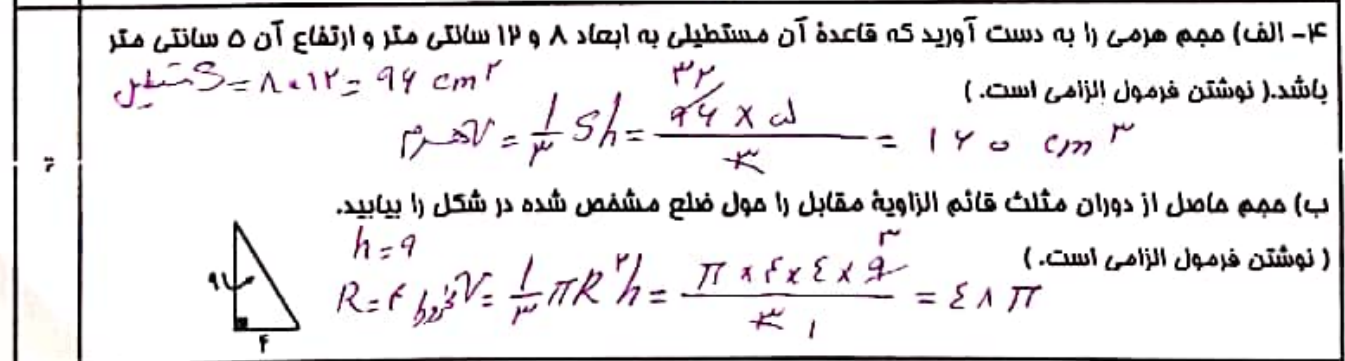 ۴- الف) حجم هرمی را به دست آورید که قاعدهٔ آن مستطیلی به ابعاد ۸ و ۱۲ سانتی متر و ارتفاع آن ۵ سانتی متر
باشد.( نوشتن فرمول الزامی است. )
S مستطیل = ۸×۱۲ = ۹۶ cm۲
V هرم = ۱/۳ Sh = ۹۶ × ۵ / ۳ = ۱۶۰ cm۳
۳۲
۲
ب) حجم حاصل از دوران مثلث قائم الزاویهٔ مقابل را حول ضلع مشخص شده در شکل را بیابید.
( نوشتن فرمول الزامی است. )
h = ۹
R = ۴
V مخروط = ۱/۳ πR۲h = π × ۴ × ۴ × ۹ / ۳ = ۴۸π
۳
۱
۹
۴